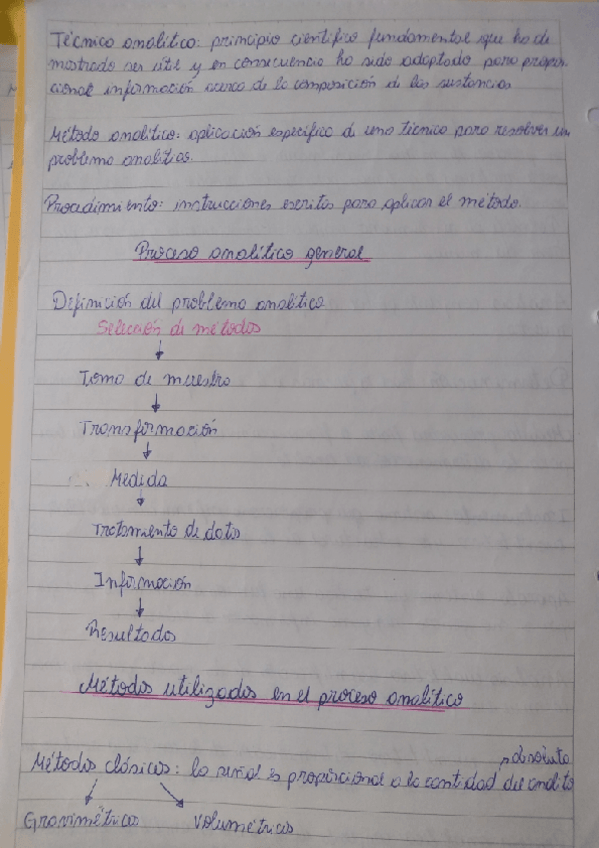 Técnica analítica: principio científico fundamental que ha de
mostrado ser útil y en consecuencia ha sido adaptado para propor
cionar información acerca de la composición de las sustancias
Método analítico: aplicación específica d una técnica para resolver un
problema analítico.
Procedimiento: instrucciones escritas para aplicar el método.
Proceso analítico general
Definición del problema analítico
Selección de métodos
↓
Toma de muestra
↓
Transformación
↓
Medida
↓
Tratamiento de datos
↓
Información
↓
Resultados
Métodos utilizados en el proceso analítico
absoluta
Métodos clásicos: la señal es proporcional a la cantidad del analito
Gravimétricos volumétricos